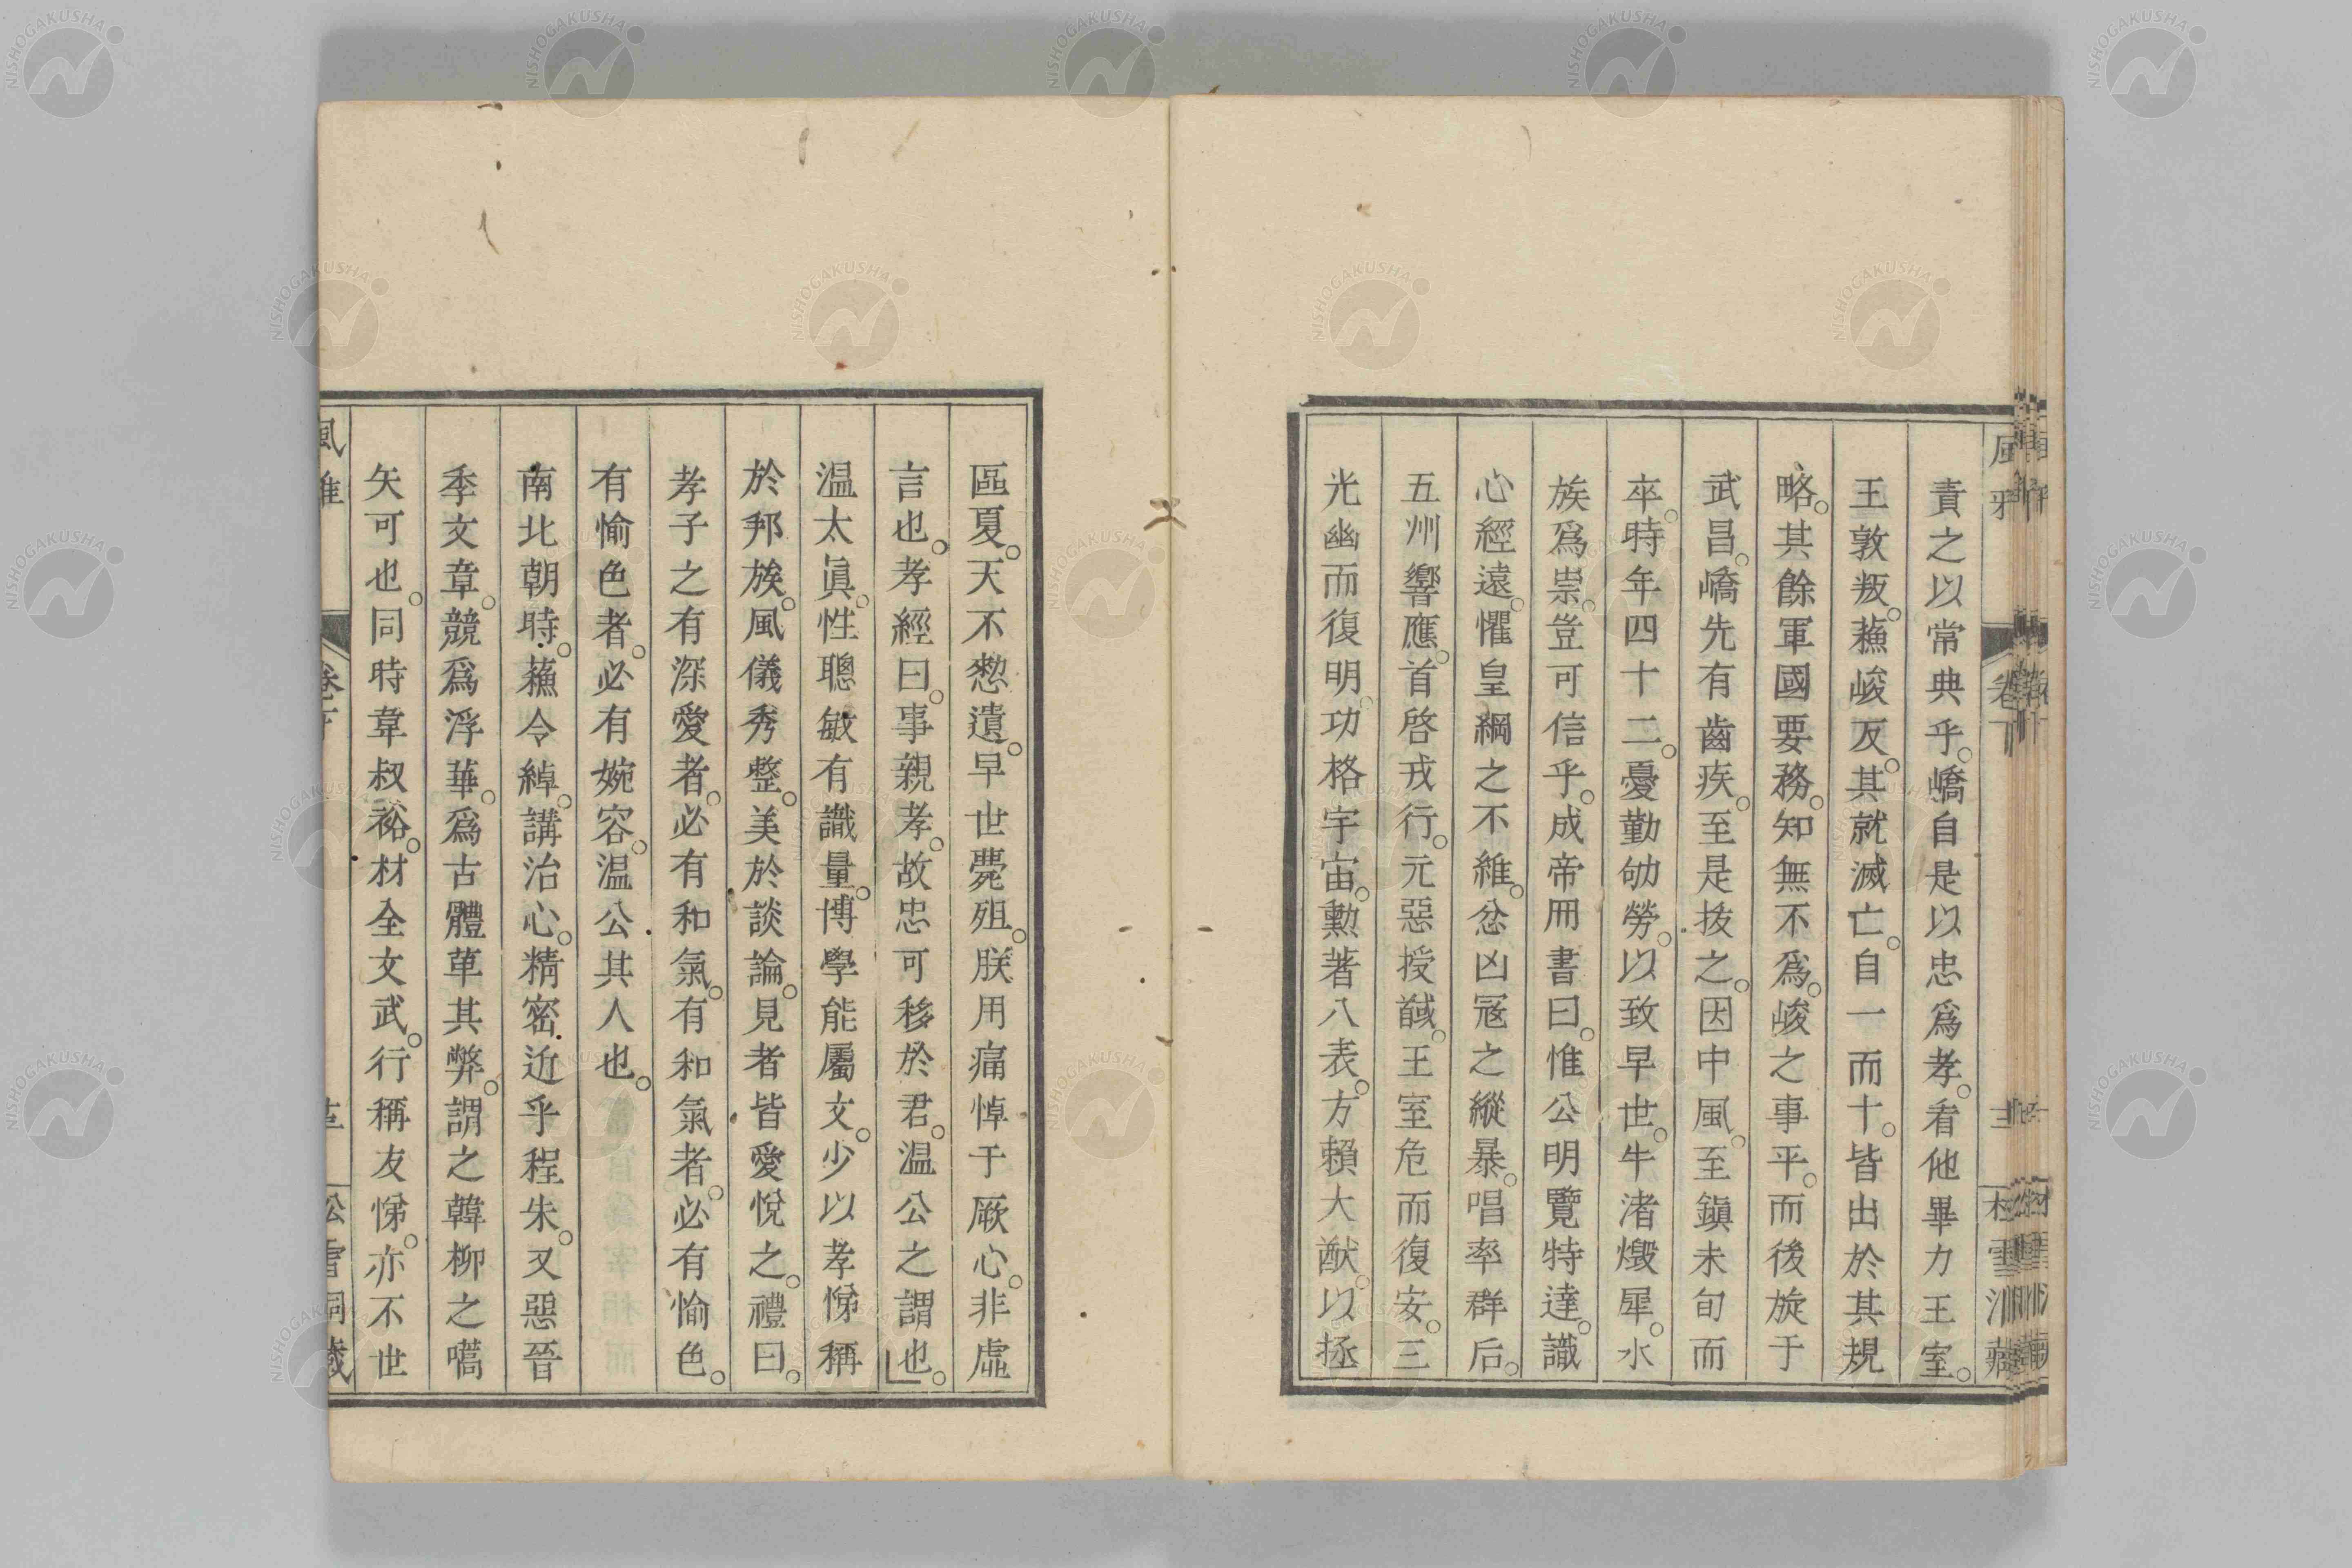 責之以常典乎。嶠自是以忠爲孝。看他畢力王室。
王敦叛。蘓峻反。其就滅亡。自一而十。皆出於其規
略。其餘軍國要務。知無不爲。峻之事平。而後旋于
武昌。嶠先有齒疾。至是拔之。因中風。至鎭未旬而
卒。時年四十二。憂勤劬勞。以致早世。牛渚燬犀。水
族爲祟。豈可信乎。成帝冊書曰。惟公明覽特達。識
心經遠。懼皇綱之不維。忿凶寇之縱暴。唱率群后。
五州響應。首啓戎行。元惡授馘。王室危而復安。三
光幽而復明。功格宇宙。勳著八表。方賴大猷。以拯
區夏。天不憖遺。早世薨殂。朕用痛悼于厥心。非虛
言也。孝經曰。事親孝。故忠可移於君。温公之謂也。
温太眞。性聰敏有識量。博學能屬文。少以孝悌稱
於邦族。風儀秀整。美於談論。見者皆愛悅之。禮曰。
孝子之有深愛者。必有和氣。有和氣者。必有愉色。
有愉色者。必有婉容。温公其人也。
南北朝時。蘓令綽。講治心。精密近乎程朱。又惡晉
季文章。競爲浮華。爲古體革其弊。謂之韓柳之嚆
矢可也。同時韋叔裕。材全文武。行稱友悌。亦不世